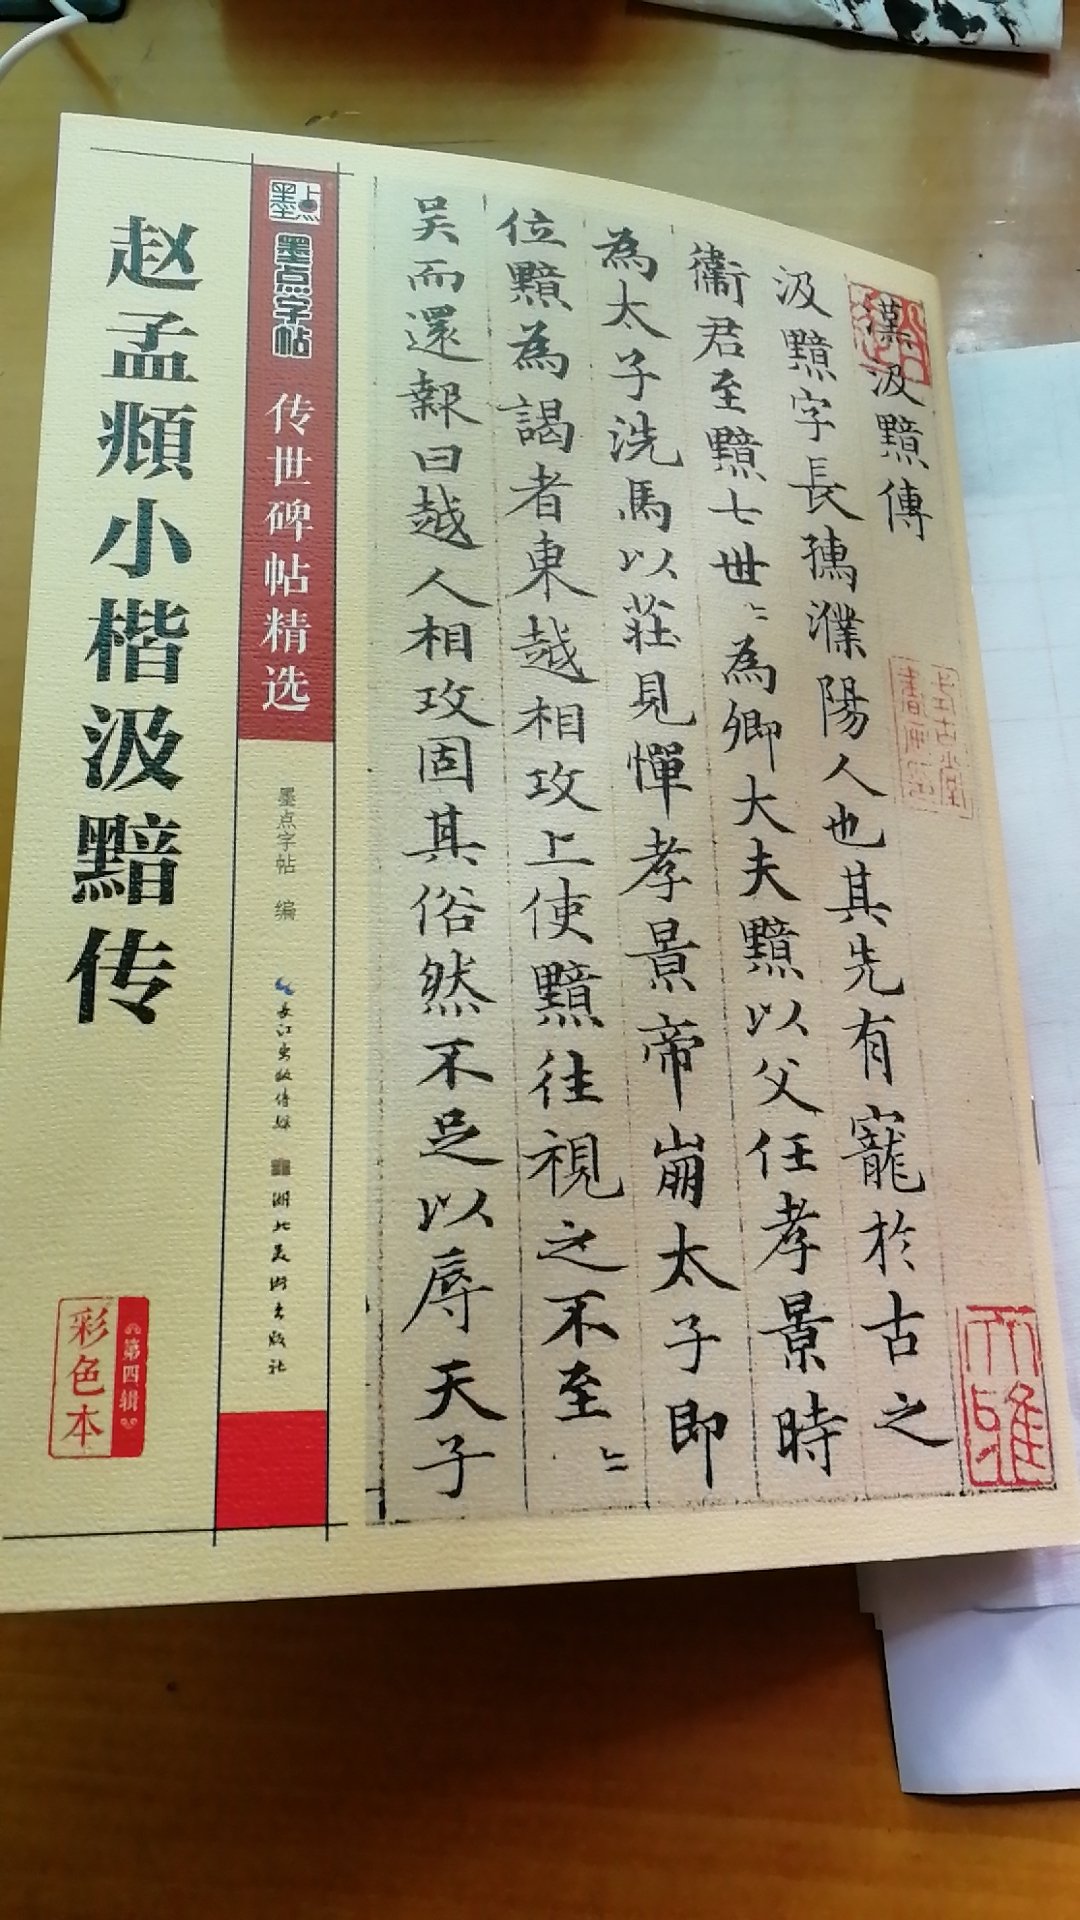 赵孟頫小楷汲黯传
墨点
墨点字帖
传世碑帖精选
墨点字帖 编
长江出版传媒
湖北美术出版社
彩色本
第四辑
漢汲黯傳
汲黯字長孺濮陽人也其先有寵於古之
衞君至黯七世〻為卿大夫黯以父任孝景時
為太子洗馬以莊見憚孝景帝崩太子即
位黯為謁者東越相攻上使黯往視之不至〻
吴而還報曰越人相攻固其俗然不足以辱天子